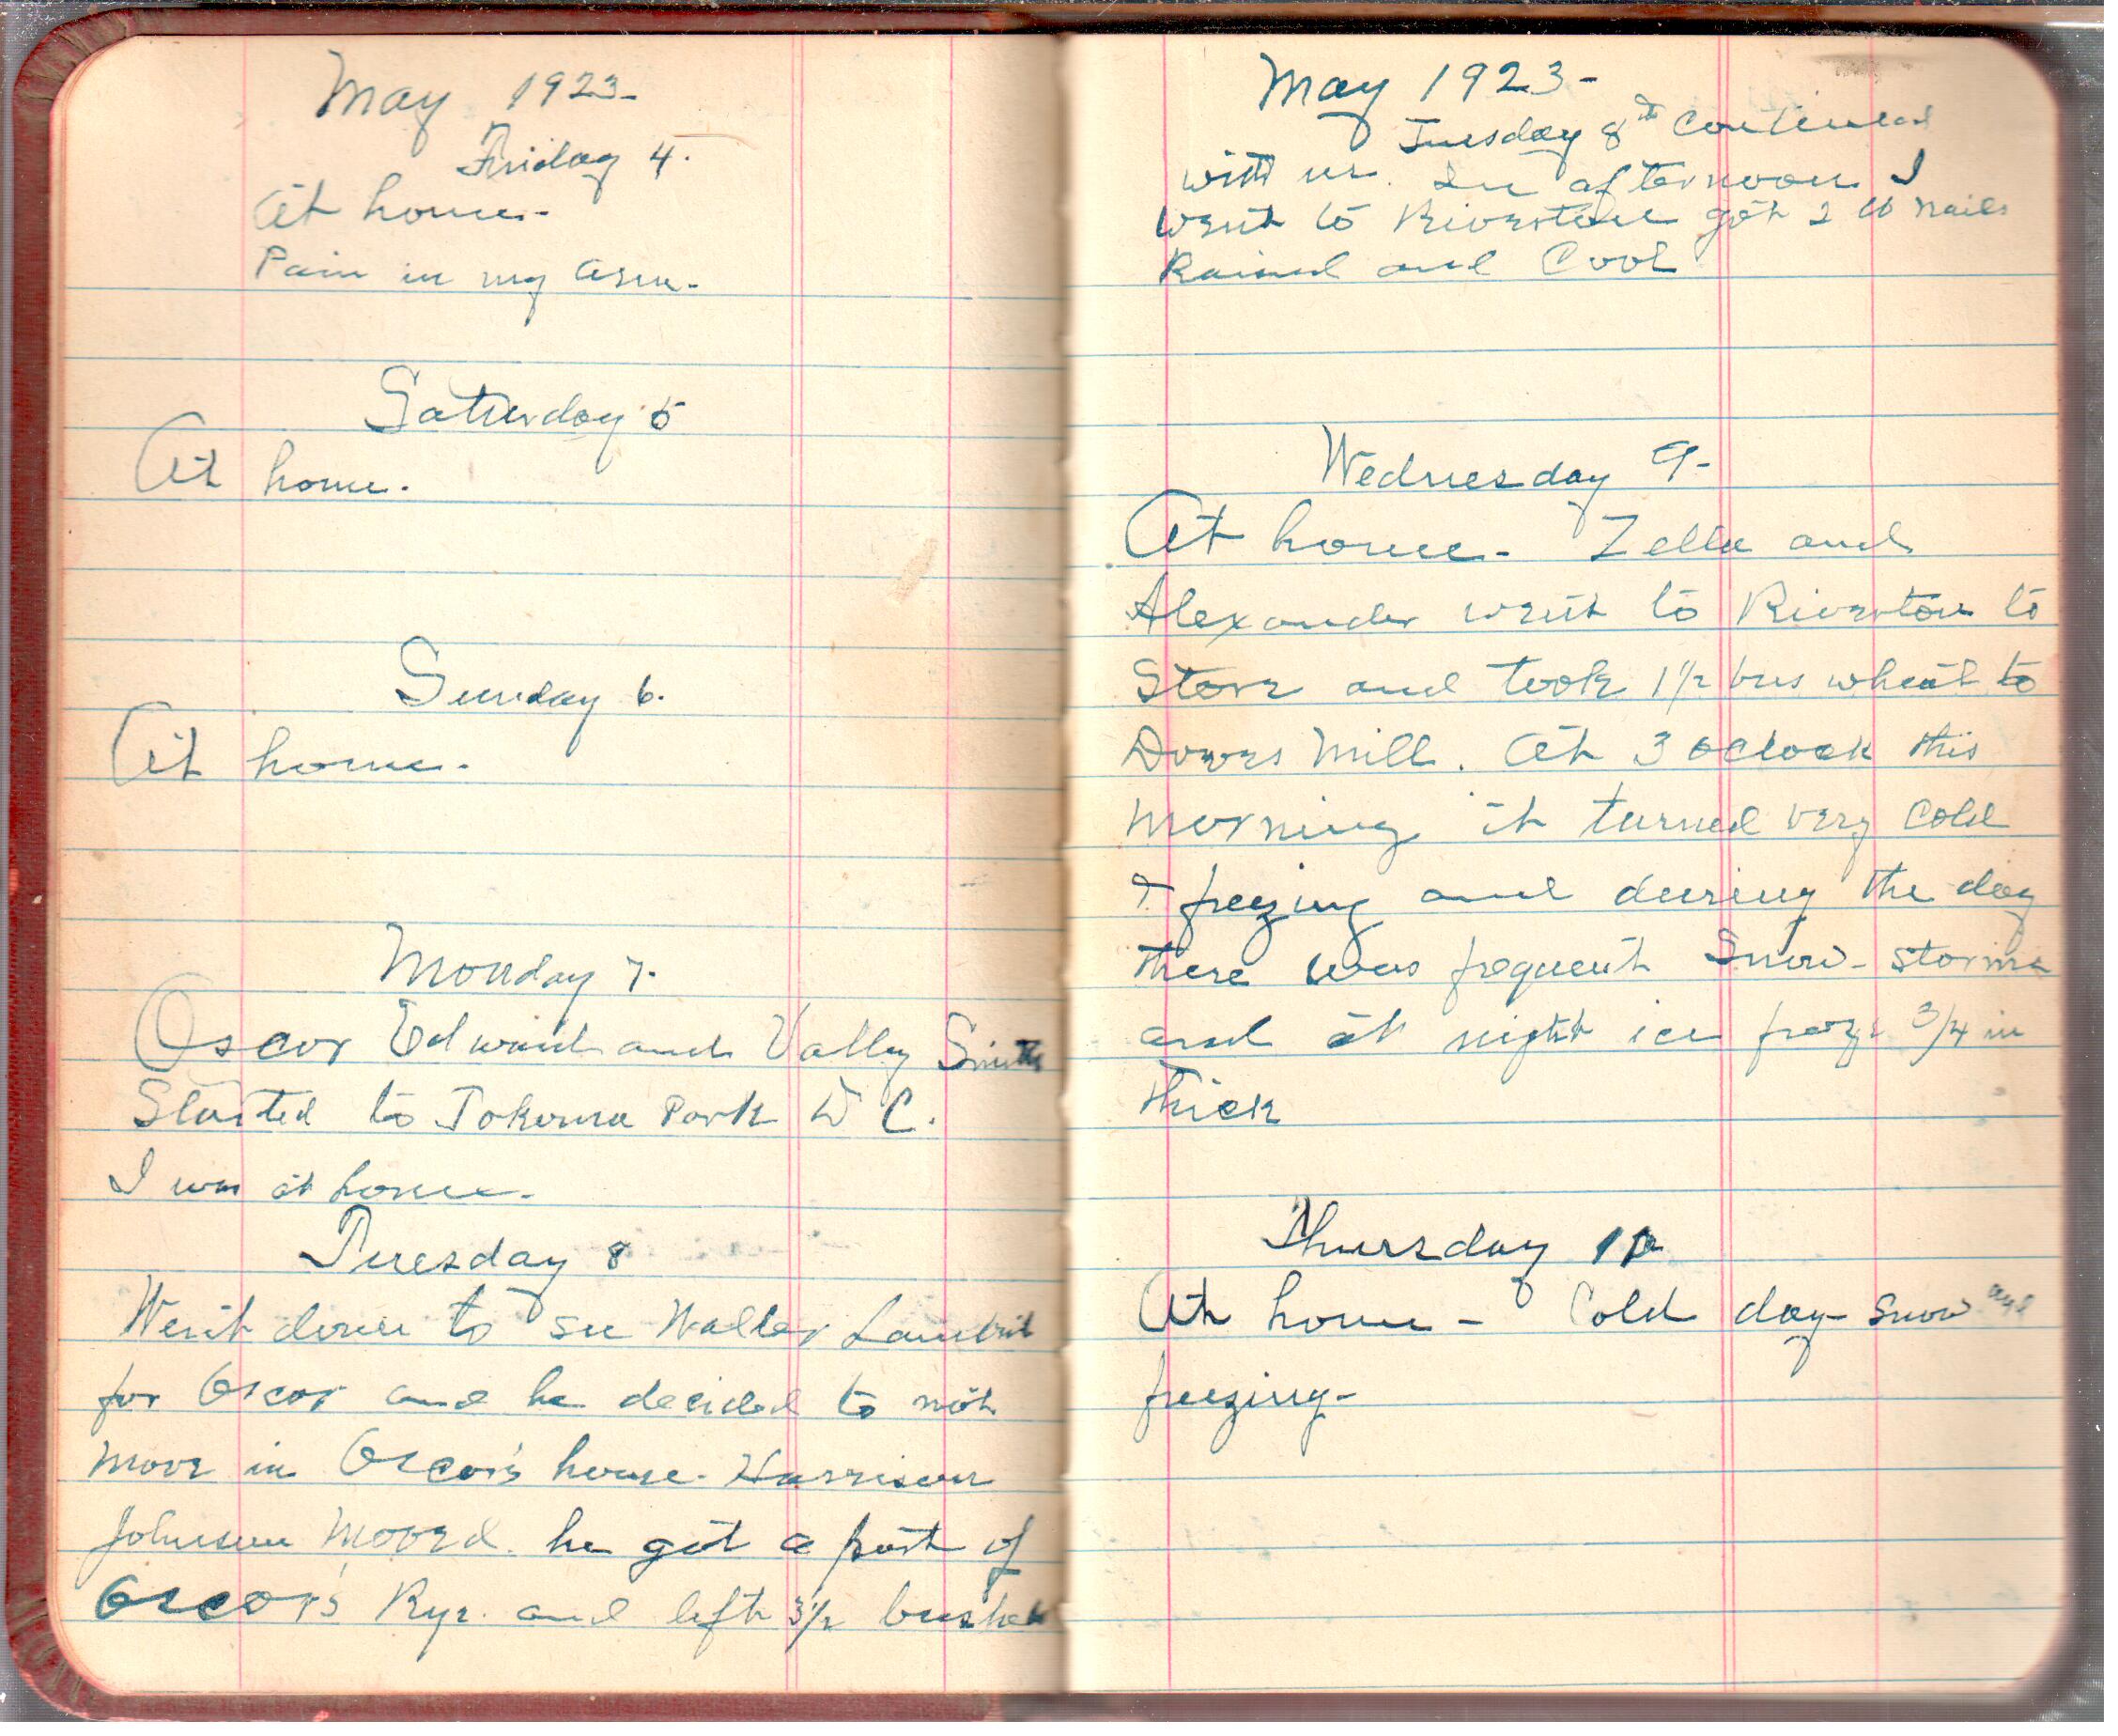 May 1923-
Friday 4.
At home-
Pain in my arm-
Saturday 5
At home.
Sunday 6.
At home.
Monday 7.
Oscar Edward and Valley Smith
Started to Tokoma Park D C.
I was at home.
Tuesday 8
Went down to see Walter Lambert
for Oscar and he decided to not
move in Oscar's house. Harrison
Johnson moved. he got a part of
Oscar's Rye. and left 3 1/2 bushels
May 1923-
Tuesday 8th Continued
with us. In afternoon I
went to Riverton got 2 lb nails
Rained and Cool
Wednesday 9-
At home. Zella and
Alexander went to Riverton to
Store and took 1 1/2 bus wheat to
Mill. At 3 oclock this
morning it turned very cold
& freezing and during the day
there was frequent Snow-storms
and at night ice froze 3/4 in
thick
Thursday 10
At home - Cold day- Snow and
freezing-